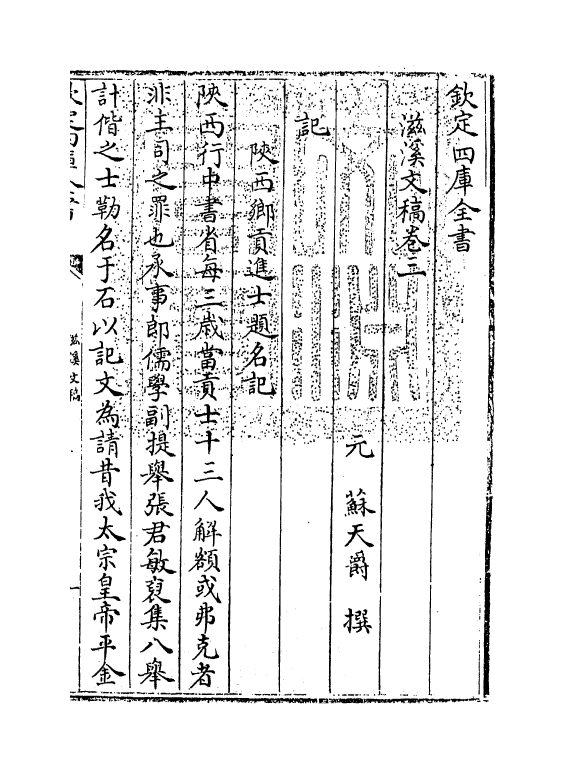 欽定四庫全書
滋溪文稿卷三
元 蘇天爵 撰
記
陜西鄉貢進士題名記
陜西行中書省每三歲當貢士十三人解額或弗克者
非主司之罪也承事郎儒學副提舉張君敏裒集八舉
計偕之士勒名于石以記文為請昔我太宗皇帝平金
欽定四庫全書
滋溪文稿
一